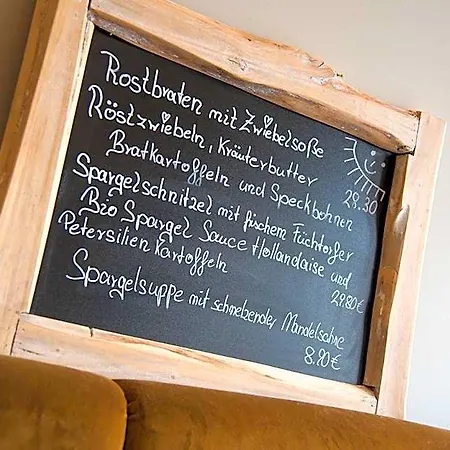 Rostbraten mit Zwiebelsoße
Röstzwiebeln, Kräuterbutter
Bratkartoffeln und Speckbohnen
29.30
Spargelschnitzel mit fischem Füchtorfer
Bio Spargel Sauce Hollandaise und
Petersilien Kartoffeln
29.80€
Spargelsuppe mit schmebender Mandelsahne
8.90€